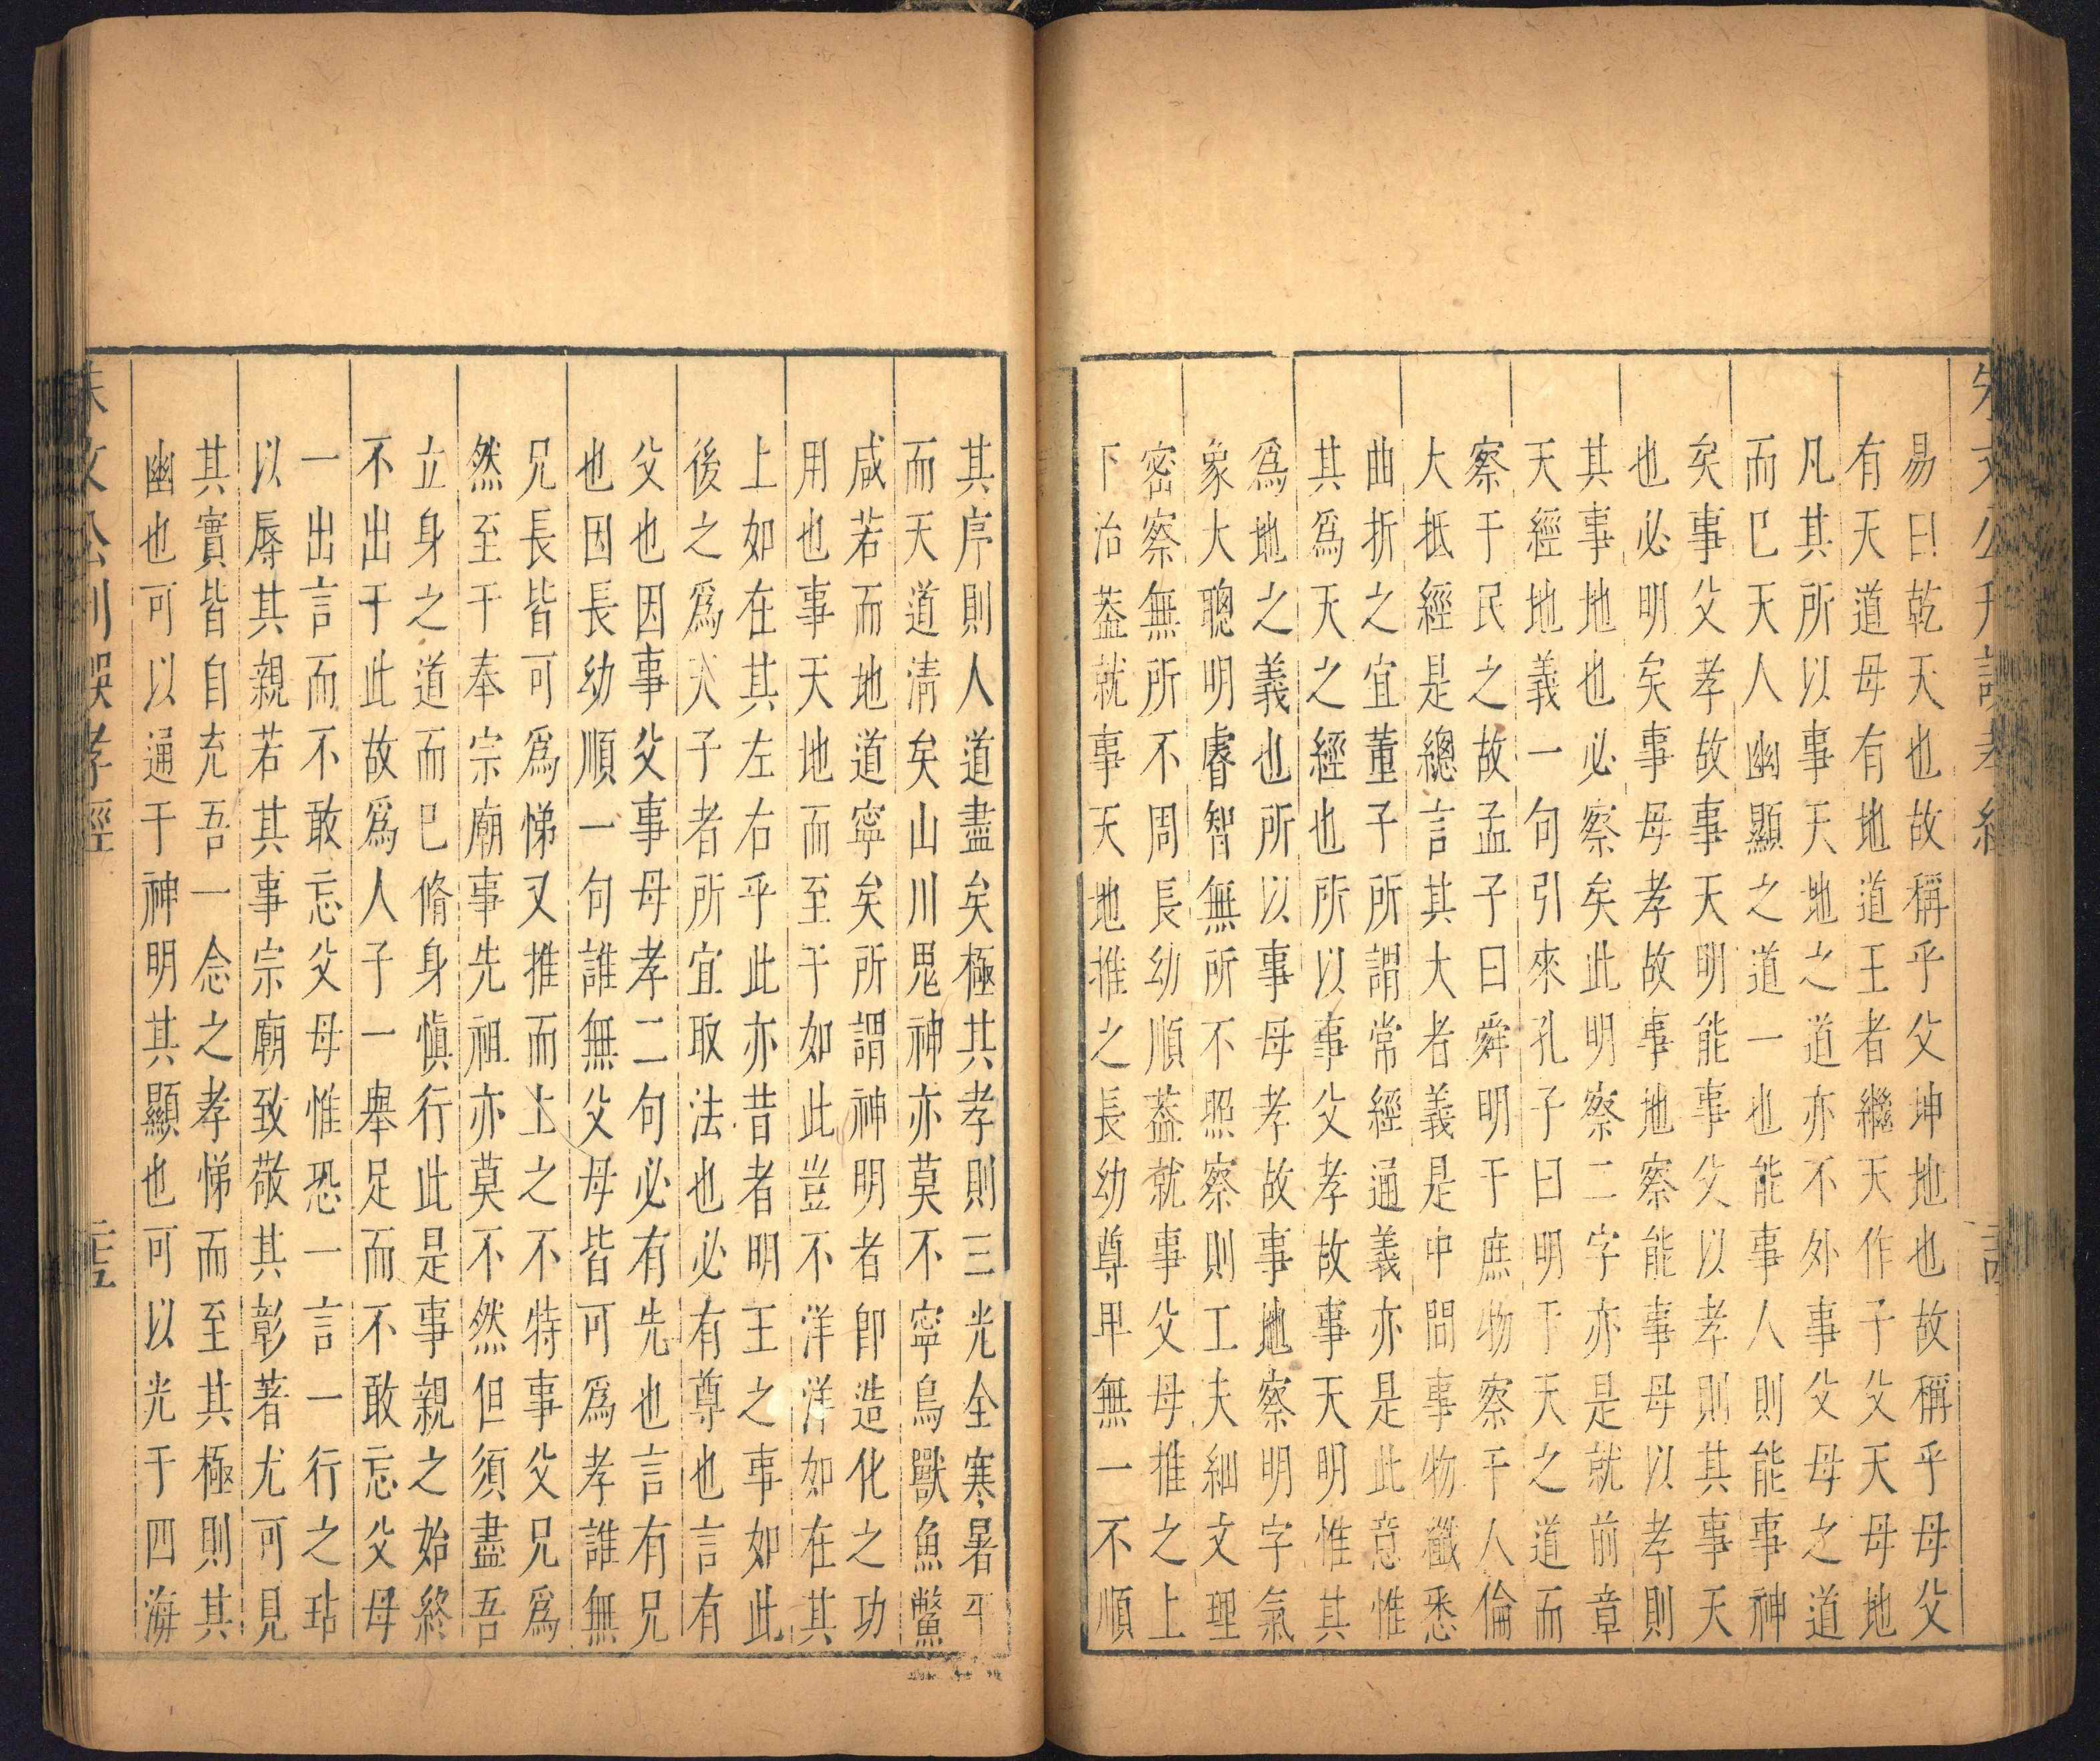 易曰乾天也故稱乎父坤地也故稱乎母父
有天道母有地道王者繼天作子父天母地
凡其所以事天地之道亦不外事父母之道
而已天人幽顯之道一也能事人則能事神
矣事父孝故事天明能事父以孝則其事天
也必明矣事母孝故事地察能事母以孝則
其事地也必察矣此明察二字亦是就前章
天經地義一句引來孔子曰明于天之道而
察于民之故孟子曰舜明于庶物察于人倫
大抵經是總言其大者義是中間事物纖悉
曲折之宜董子所謂常經通義亦是此意惟
其爲天之經也所以事父孝故事天明惟其
爲地之義也所以事母孝故事地察明字氣
象大聰明睿智無所不照察則工夫細文理
密察無所不周長幼順葢就事父母推之上
下治葢就事天地推之長幼尊卑無一不順
其序則人道盡矣極其孝則三光全寒暑平
而天道清矣山川鬼神亦莫不寧鳥獸魚鱉
咸若而地道寧矣所謂神明者卽造化之功
用也事天地而至于如此豈不洋洋如在其
上如在其左右乎此亦昔者明王之事如此
後之爲人子者所宜取法也必有尊也言有
父也因事父事母孝二句必有先也言有兄
也因長幼順一句誰無父母皆可爲孝誰無
兄長皆可爲悌又推而上之不特事父兄爲
然至于奉宗廟事先祖亦莫不然但須盡吾
立身之道而已脩身愼行此是事親之始終
不出于此故爲人子一舉足而不敢忘父母
一出言而不敢忘父母惟恐一言一行之玷
以辱其親若其事宗廟致敬其彰著尤可見
其實皆自充吾一念之孝悌而至其極則其
幽也可以通于神明其顯也可以光于四海
朱文公刊誤孝經